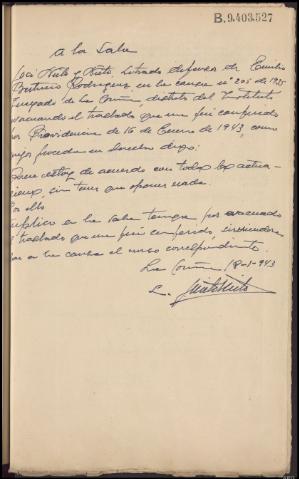 B.9.403.527
A la Sala
José Nieto y Nieto, Letrado defensor de Emilio
Rodríguez, en la causa nº 205 de 1935
Juzgado de La Coruña, distrito del Instituto
evacuando el traslado que me fué conferido
por Providencia de 16 de Enero de 1943, como
mejor proceda en derecho digo:
Que estoy de acuerdo con todo lo actua-
sin tener que oponer nada.
Por ello
Suplico a la Sala tenga por evacuado
el traslado que me fué conferido,
a la causa el curso correspondiente.
La Coruña 18-1-943
L. Nieto Nieto